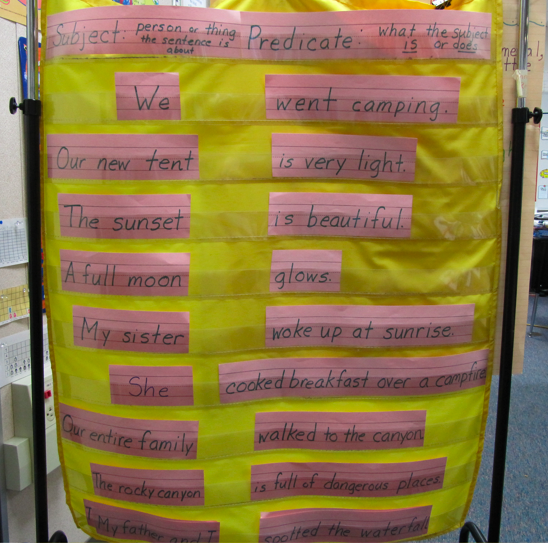 Subject: person or thing the sentence is about Predicate: what the subject is or does
We went camping.
Our new tent is very light.
The sunset is beautiful.
A full moon glows.
My sister woke up at sunrise.
She cooked breakfast over a campfire
Our entire family walked to the canyon.
The rocky canyon is full of dangerous places.
My father and I spotted the waterfall.